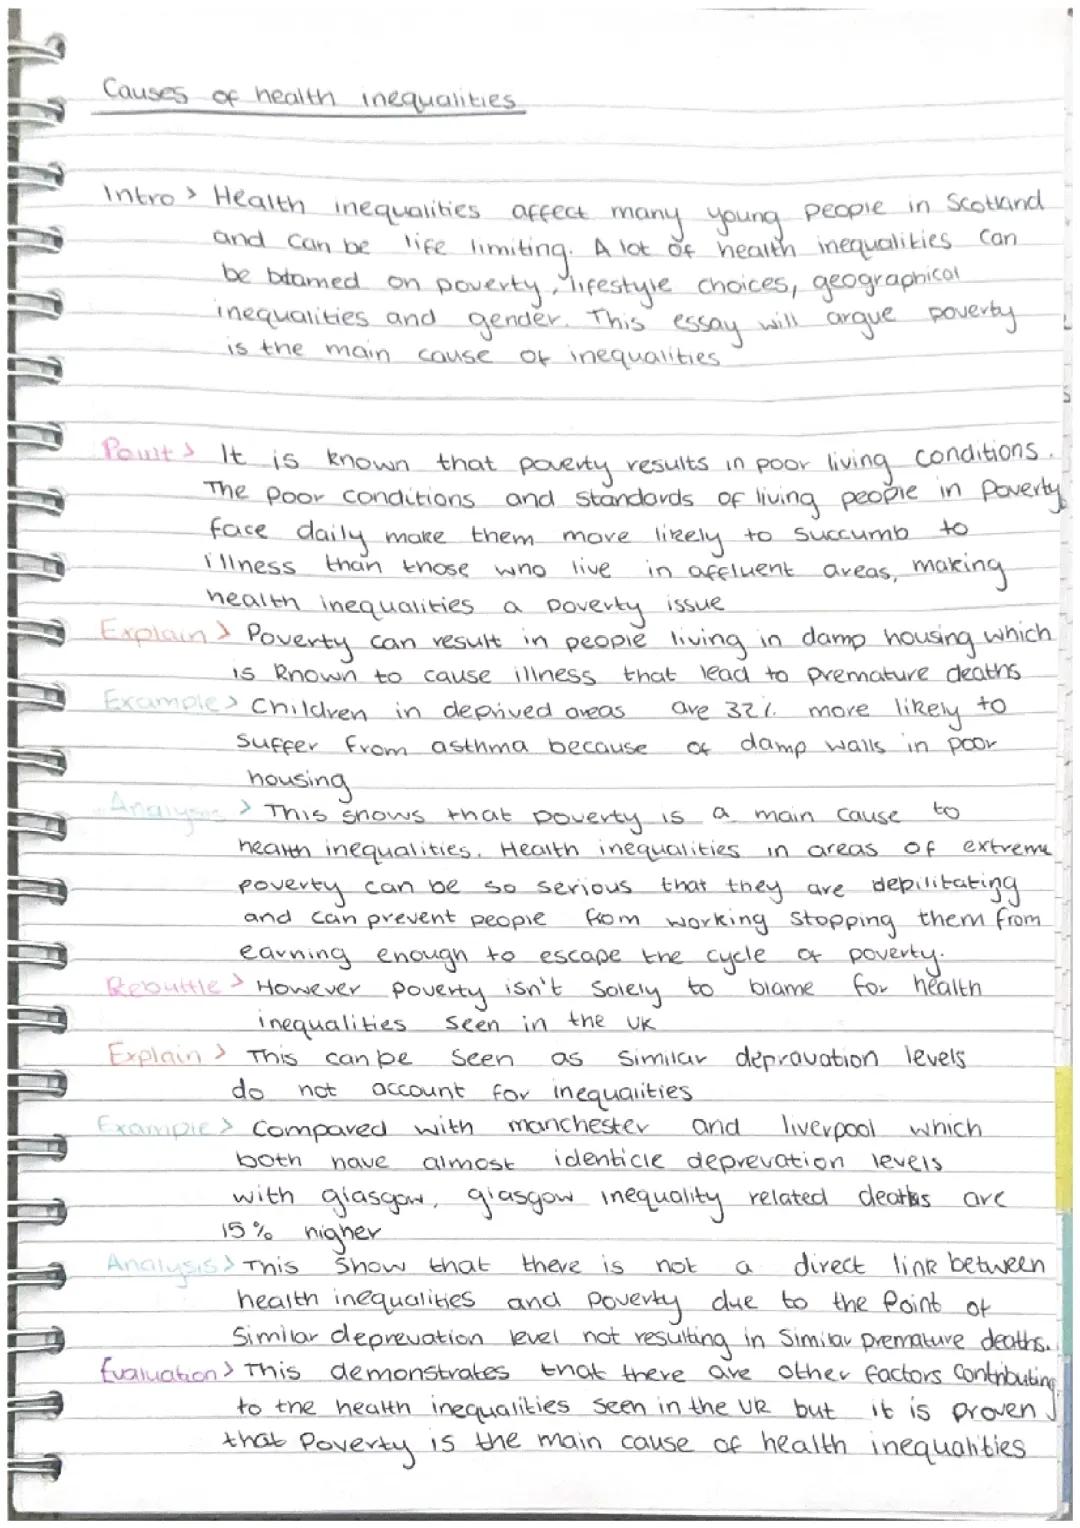 Causes of health inequalities
Intro > Health inequalities affect many young people in Scotland
and can be life limiting. A lot of health inequalities can
be blamed on poverty, lifestyle choices, geographical
inequalities and gender. This essay will argue poverty
is the main cause of inequalities
Point > It is known that poverty results in poor living conditions.
The poor conditions and standards of living people in poverty
face daily make them more likely to succumb to
illness than those who live in affluent areas, making
health inequalities a poverty issue
Explain > Poverty can result in people living in damp housing which
is known to cause illness that lead to premature deaths
Example > Children in deprived areas are 32% more likely to
suffer from asthma because of damp walls in poor
housing
Analysis > This shows that poverty is a main cause to
health inequalities. Health inequalities in areas of extreme
poverty can be so serious that they are depilitating
and can prevent people from working stopping them from
earning enough to escape the cycle of poverty.
Rebuttle > However poverty isn't solely to blame for health
inequalities seen in the UK
Explain > This can be seen as similar depravation levels
do not account for inequalities
Example > Compared with manchester and liverpool which
both have almost identicle deprevation levels
with glasgow, glasgow inequality related deaths are
15% higher
Analysis > This show that there is not a direct link between
health inequalities and poverty due to the point of
similar deprevation level not resulting in similar premature deaths.
Evaluation > This demonstrates that there are other factors contributing
to the health inequalities seen in the UK but it is proven
that poverty is the main cause of health inequalities